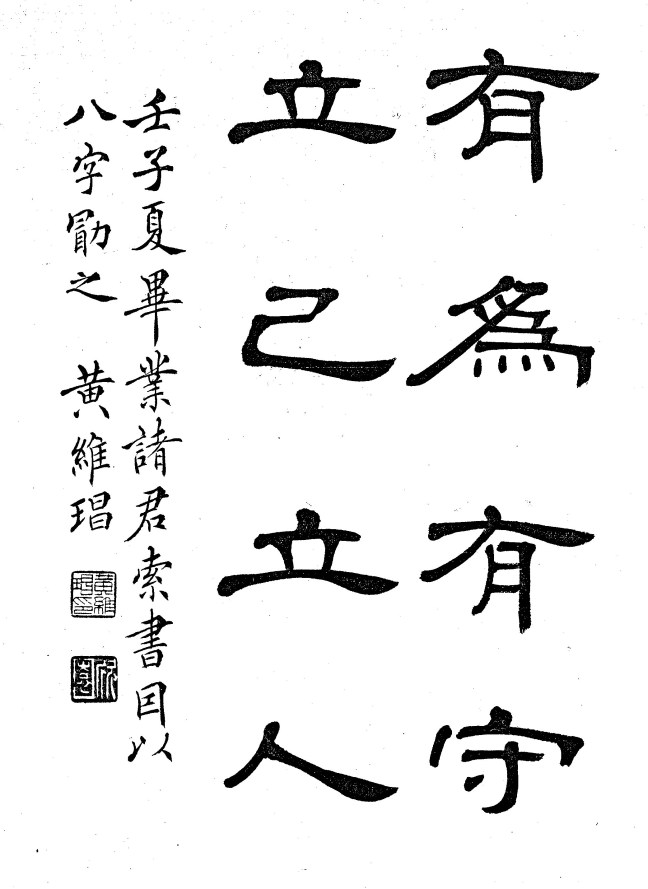 有為有守
立己立人
壬子夏畢業諸君索書因以
八字勖之 黃維琩
黃維琩印